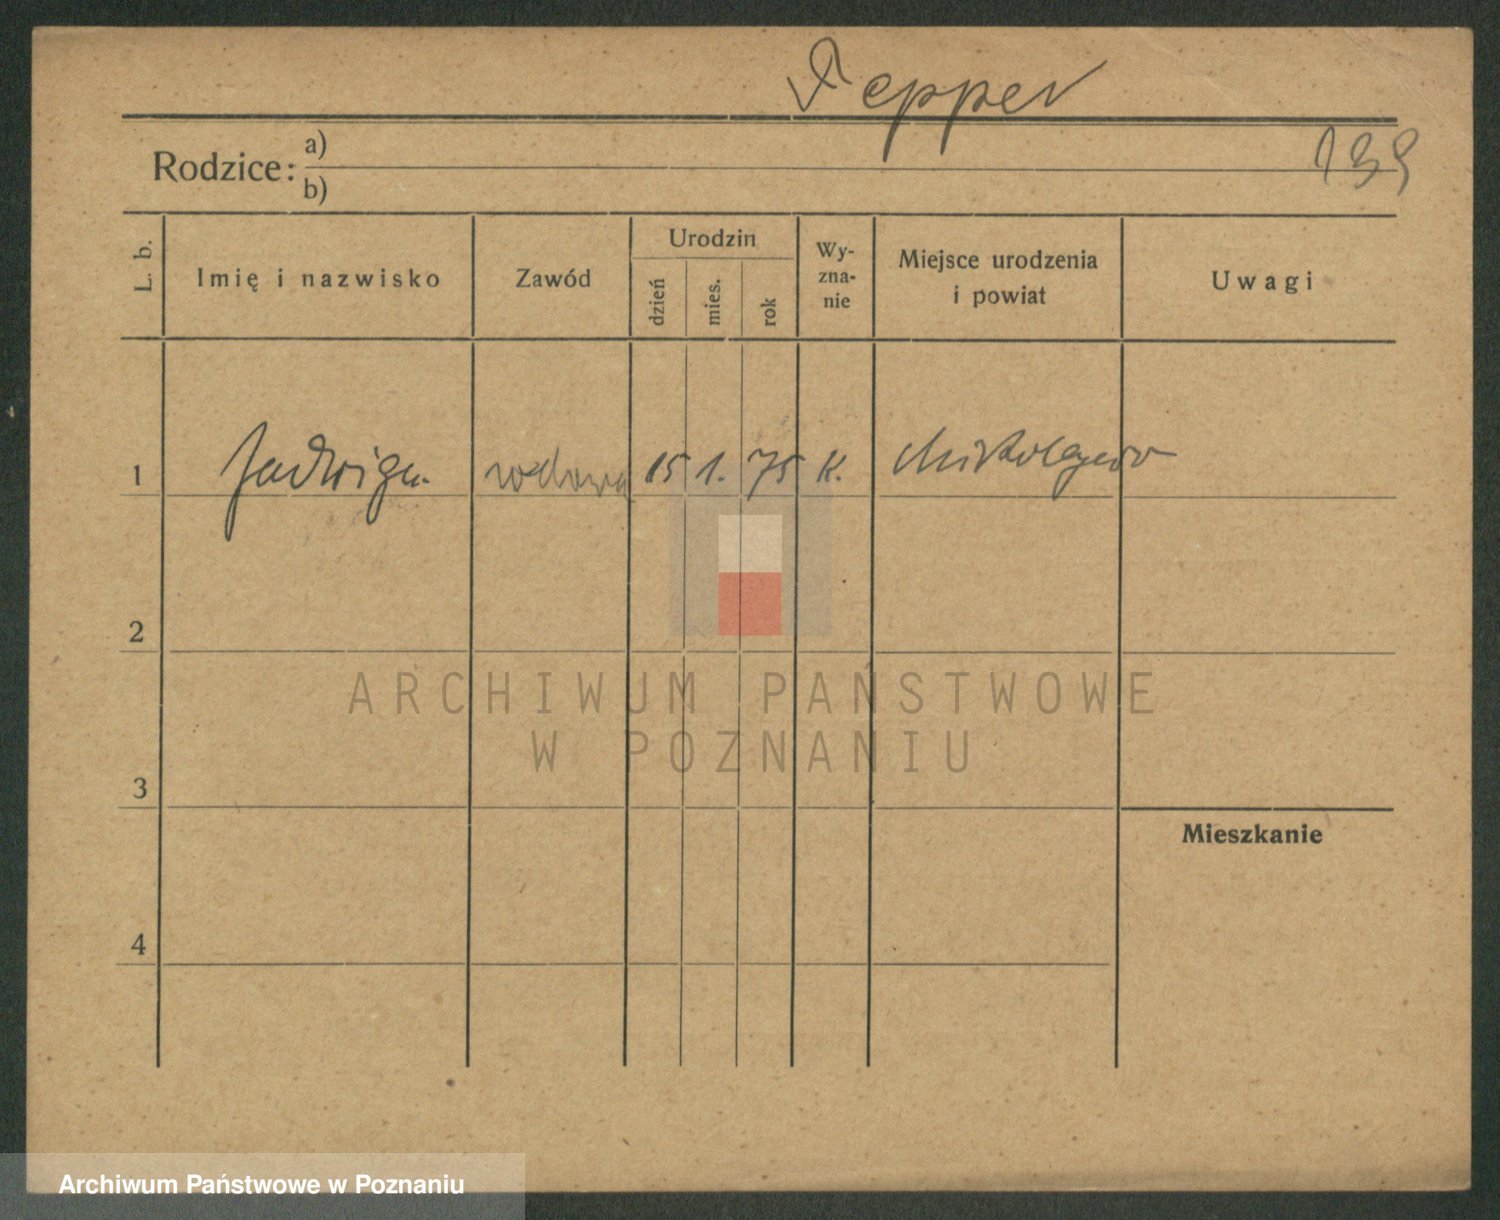 Pepper
139
Rodzice: a)
b)
L. b.
Imię i nazwisko
Zawód
Urodzin
dzień
mies.
rok
Wy-
zna-
nie
Miejsce urodzenia
i powiat
Uwagi
1 Jadwiga wdowa 15 1. 75 K. Mikołajewo
2
3
Mieszkanie
4
ARCHIWUM PAŃSTWOWE
W POZNANIU
Archiwum Państwowe w Poznaniu